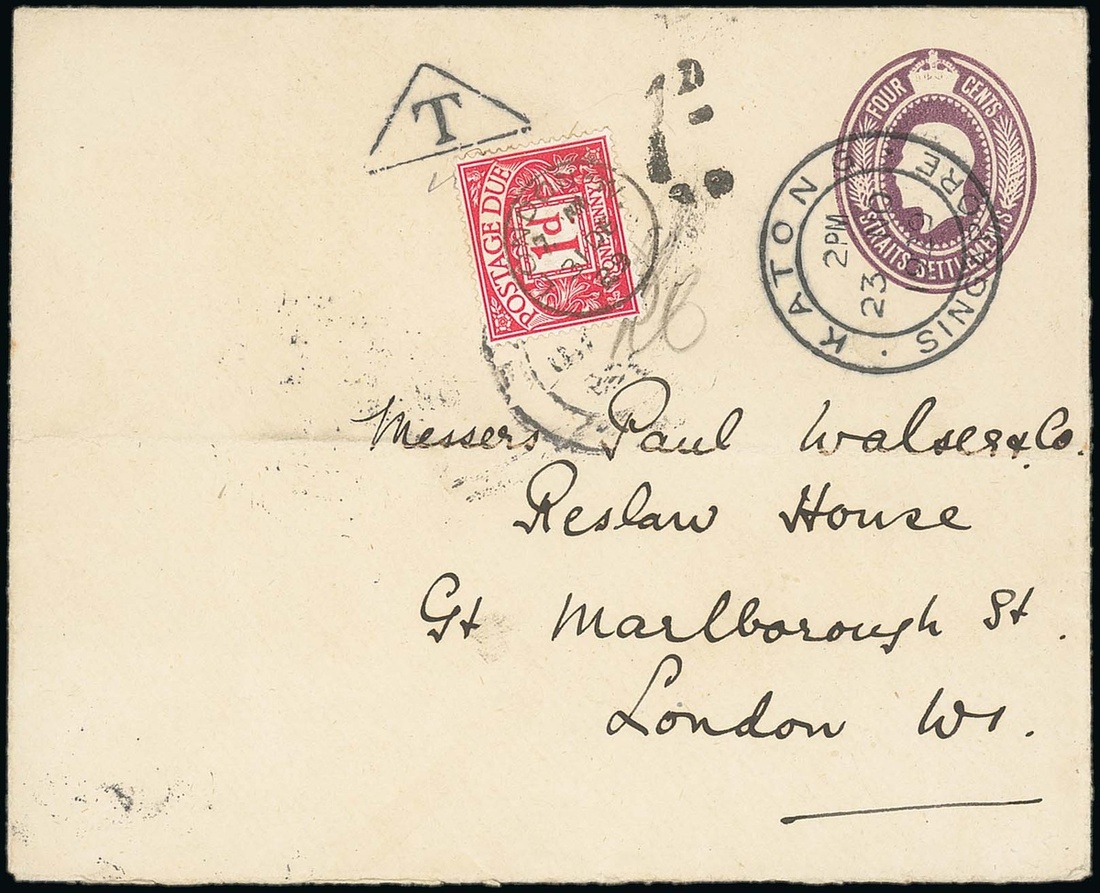 T
1D.
FOUR CENTS
STRAITS SETTLEMENTS
KATONG
SINGAPORE
2PM
23
POSTAGE DUE
1D
ONE PENNY
Messers Paul Walser & Co.
Reslaw House
Gt Marlborough St.
London W1.